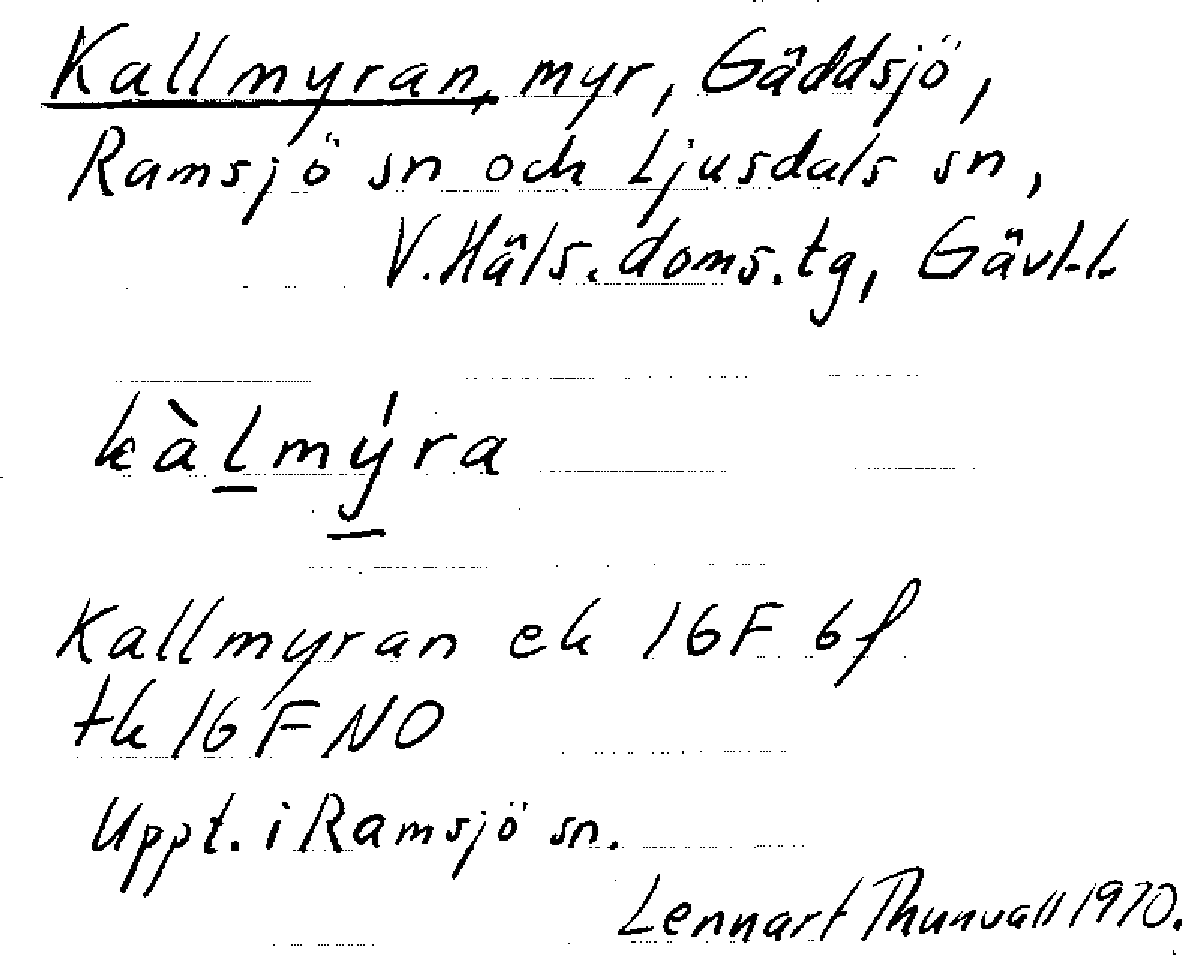 Kallmyran, myr, Gäddsjö,
Ramsjö sn och Ljusdals sn,
V. Häls. doms. tg, Gävl.l.
kàlmýra
Kallmyran ek 16F 6f
tk 16F NO
Uppt. i Ramsjö sn.
Lennart Thunvall 1970.